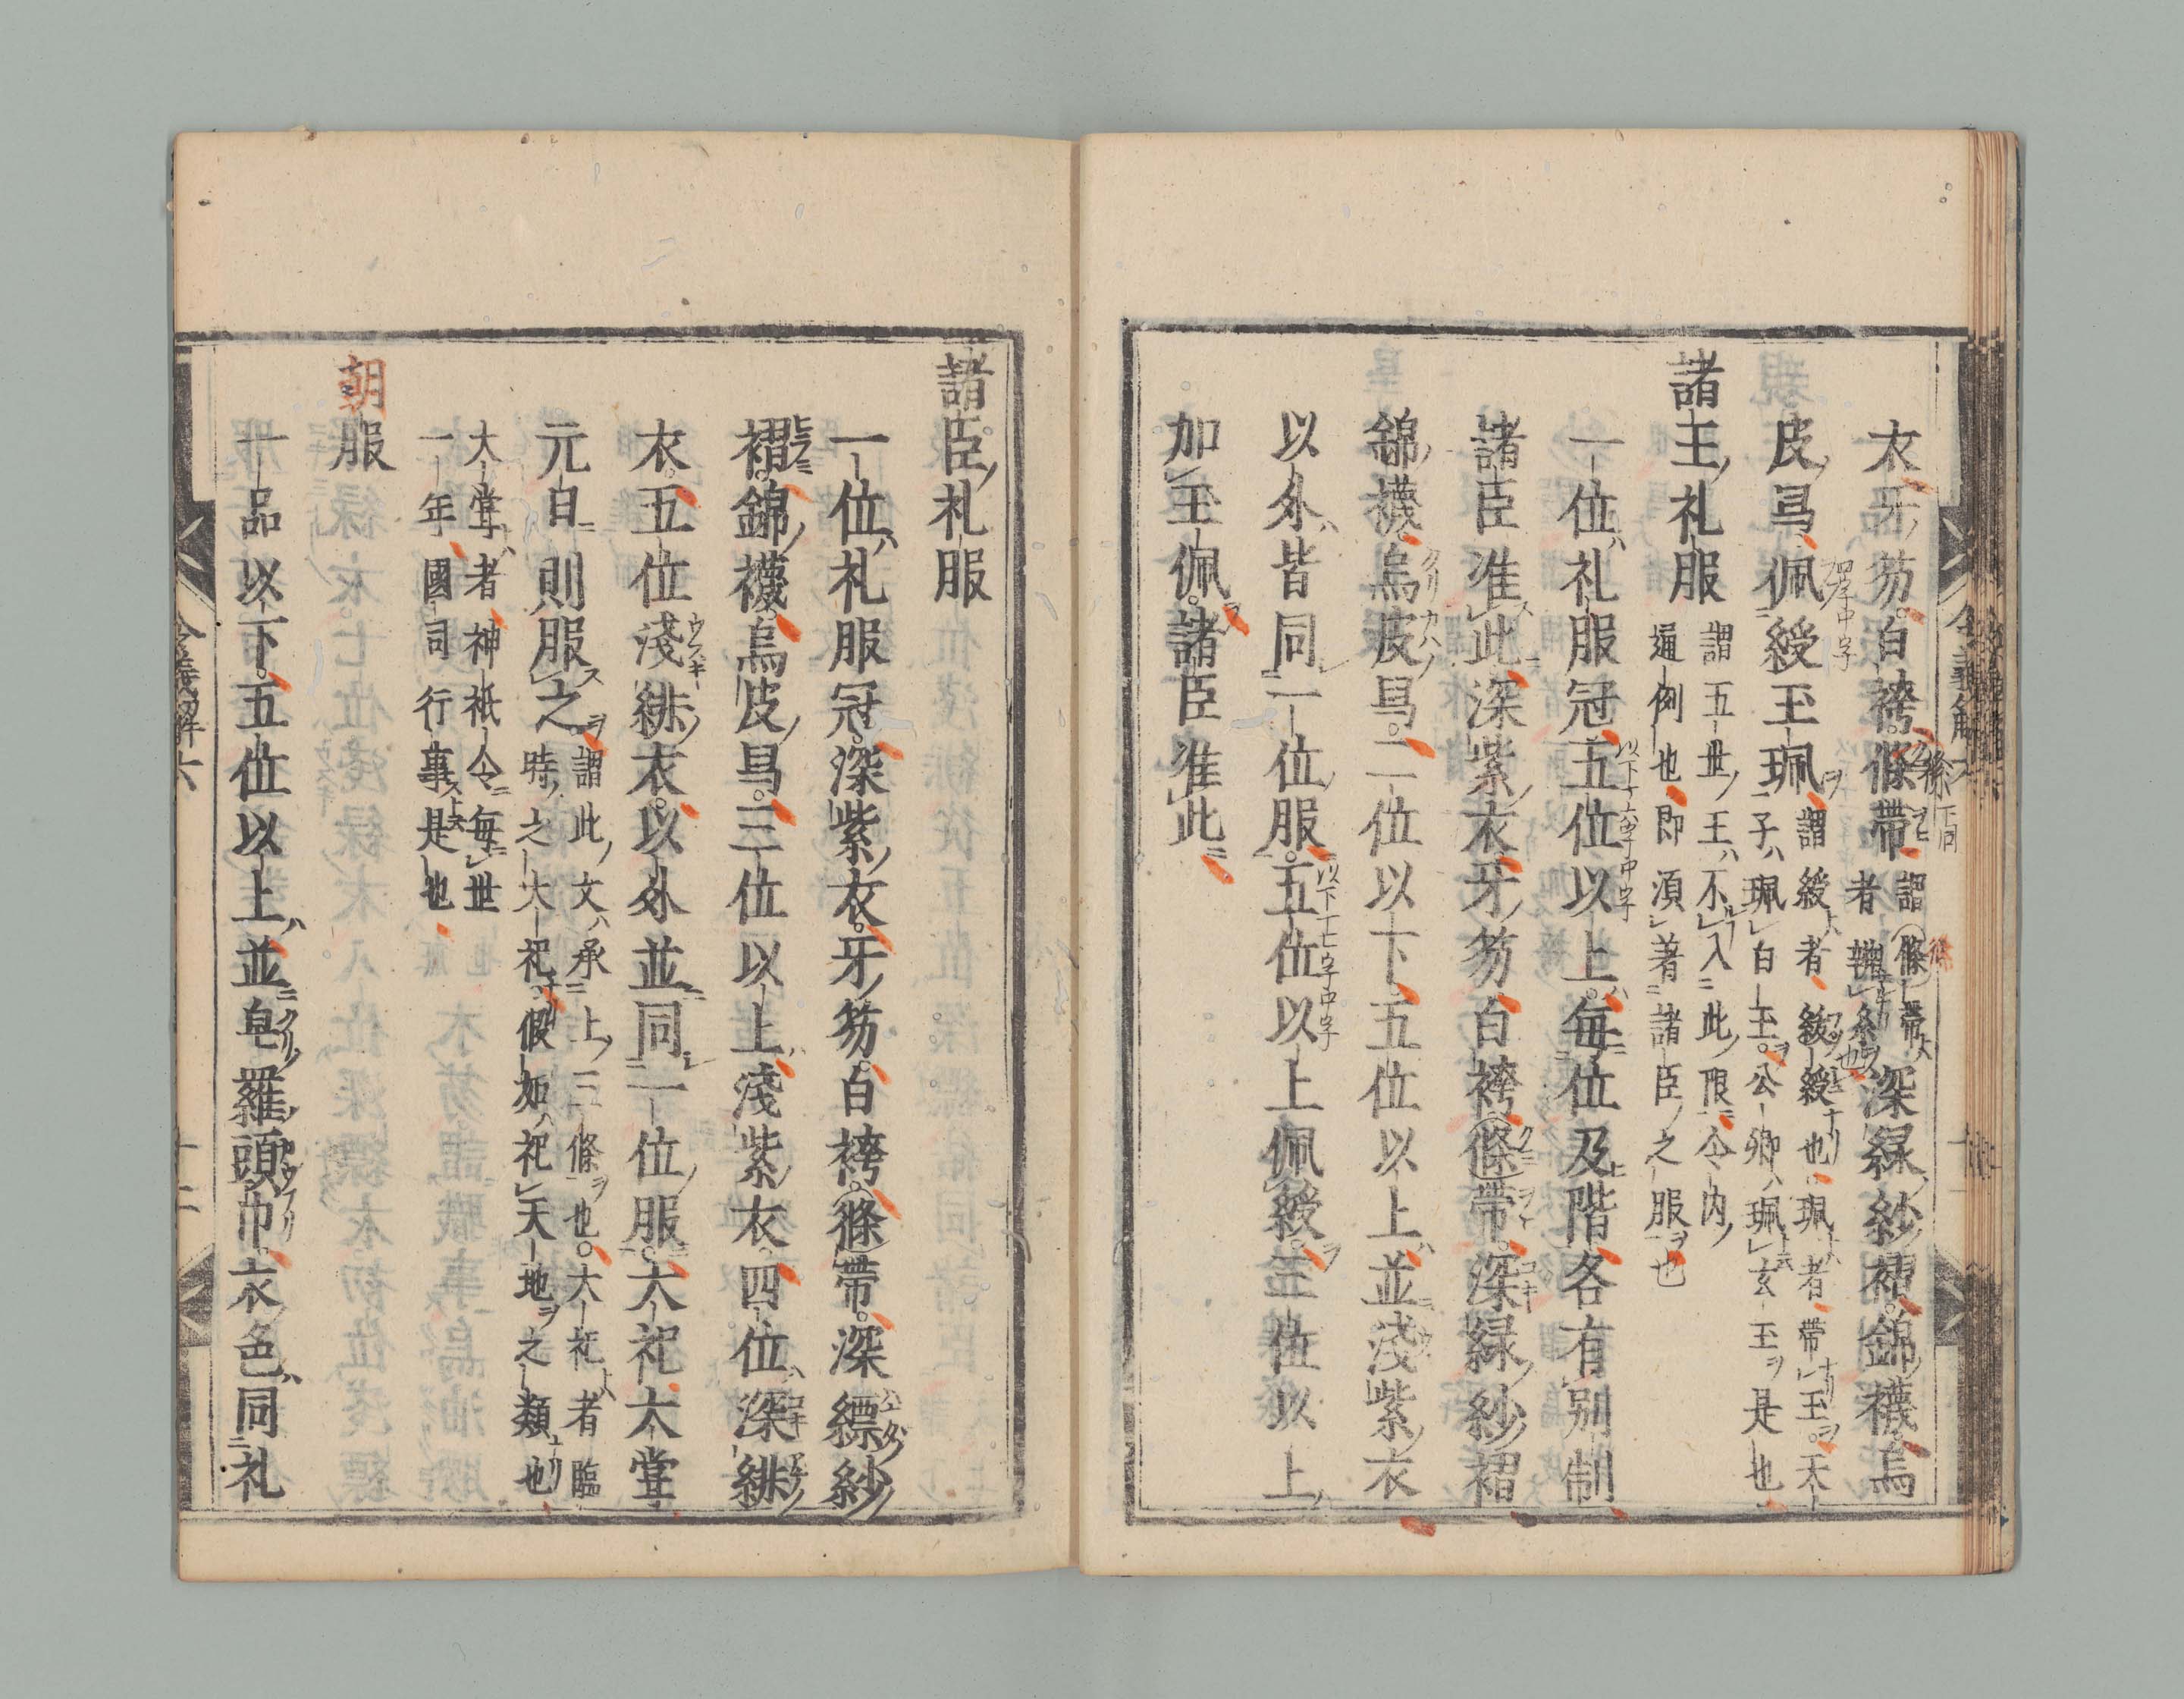 衣牙笏白袴條帶謂條帶
者辮糸也深緑紗褶錦襪烏
皮舃佩綬玉珮謂綬者紱綬也珮者帶玉天
子珮白玉公卿珮玄玉是也
諸王礼服謂五世王不入此限令内
通例也即須著諸臣之服也
一位礼服冠五位以上毎位及階各有別制
諸臣准此深紫衣牙笏白袴條帶深緑紗褶
錦襪烏皮舃二位以下五位以上並淺紫衣
以外皆同一位服五位以上佩綬三位以上
加玉佩諸臣准此
諸臣礼服
一位礼服冠深紫衣牙笏白袴條帶深縹紗
褶錦襪烏皮舃三位以上淺紫衣四位深緋
衣五位淺緋衣以外並同一位服大祀大甞
元日則服之謂此文承上三條也大祀者臨
時之大祀假如祀天地之類也
大甞者神祇令毎世
一年國司行事是也
朝服
一品以下五位以上並皂羅頭巾衣色同礼
令義解六
十二